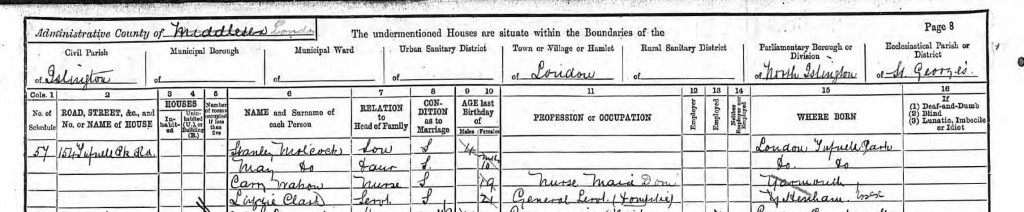 Administrative County of Middlesex London The undermentioned Houses are situate within the Boundaries of the Page 8
Civil Parish Municipal Borough Municipal Ward Urban Sanitary District Town or Village or Hamlet Rural Sanitary District Parliamentary Borough or Division Ecclesiastical Parish or District
of Islington of of of of London of of North Islington of St. George's
Cols. 1 2 3 4 5 6 7 8 9 10 11 12 13 14 15 16
No. of Schedule ROAD, STREET, &c., and No. or NAME of HOUSE HOUSES Inhabited Uninhabited (U.), or Building (B.) Number of rooms occupied if less than five NAME and Surname of each Person RELATION to Head of Family CONDITION as to Marriage AGE last Birthday of Males Females PROFESSION or OCCUPATION Employer Employed Neither Employer nor Employed WHERE BORN If (1) Deaf-and-Dumb (2) Blind (3) Lunatic, Imbecile or Idiot
57 154 Tufnell Pk Rd. Stanley Son S 4 London Tufnell Park
May Do Daur S 10 mths Do. Do
Nurse S 19 Nurse Maid Dom Yarmouth
Lizzie Clark Servt. S 21 General Servt. Essex